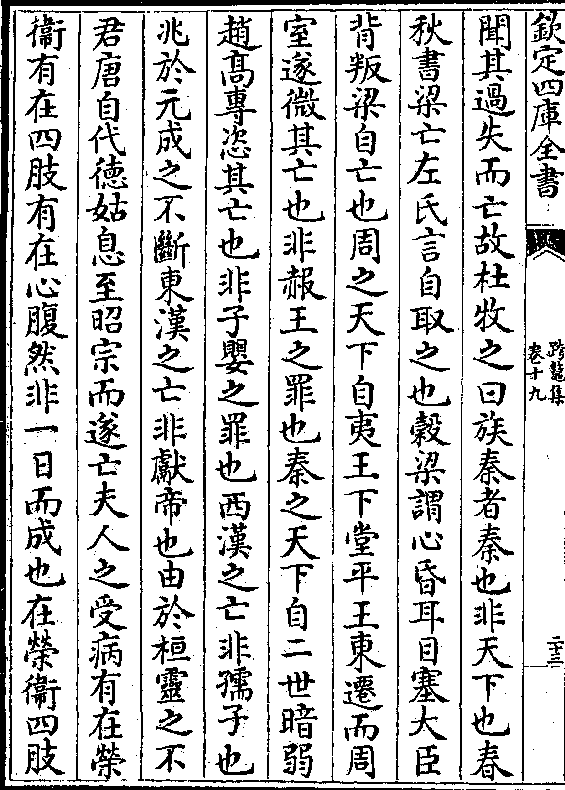 欽定四庫全書
跨鼇集
卷十九
二十三
聞其過失而亡故杜牧之曰族秦者秦也非天下也春
秋書梁亡左氏言自取之也穀梁謂心昏耳目塞大臣
背叛梁自亡也周之天下自夷王下堂平王東遷而周
室遂微其亡也非赧王之罪也秦之天下自二世暗弱
趙髙專恣其亡也非子嬰之罪也西漢之亡非孺子也
兆於元成之不斷東漢之亡非獻帝也由於桓靈之不
君唐自代德姑息至昭宗而遂亡夫人之受病有在榮
衞有在四肢有在心腹然非一日而成也在榮衞四肢